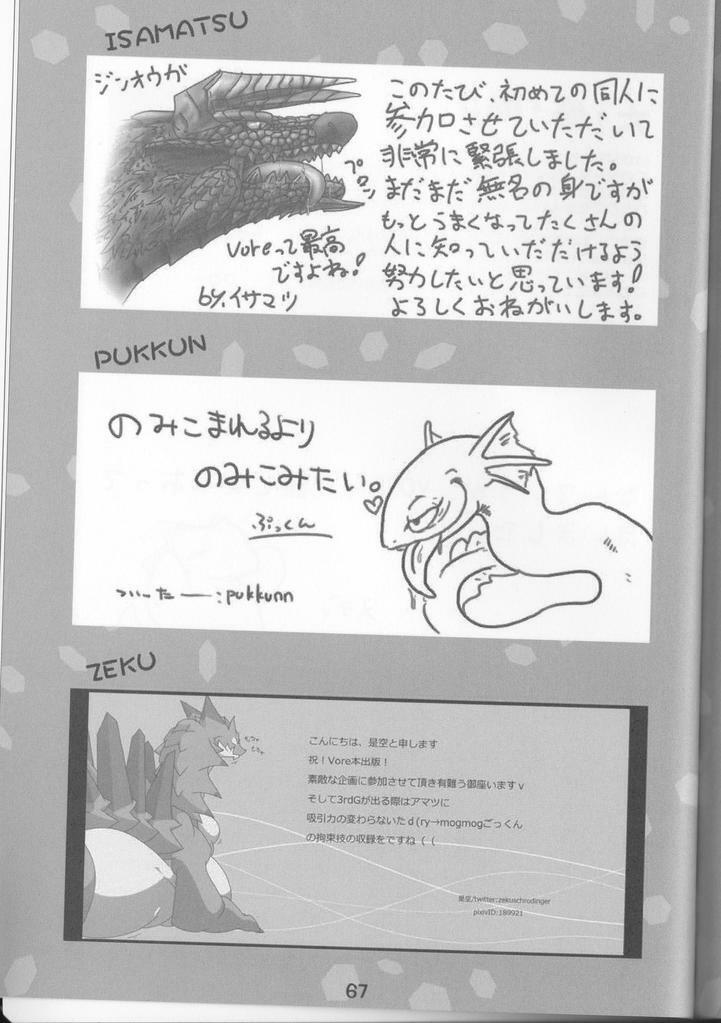 ISAMATSU
ジンオウガ
プラン
Voreって最高
ですよね!
by.イサマツ
このたび、初めての同人に
参加させていただいて
非常に緊張しました。
まだまだ無名の身ですが
もっとうまくなってたくさんの
人に知っていだだけるよう
努力したいと思っています!
よろしくおねがいします。
PUKKUN
のみこまれるより
のみこみたい。
ぷっくん
ついったー:pukkunn
ZEKU
こんにちは、是空と申します
祝!Vore本出版!
素敵な企画に参加させて頂き有難う御座いますv
そして3rdGが出る際はアマツに
吸引力の変わらないたd(ry→mogmogごっくん
の拘束技の収録をですね((
是空/twitter:zekuschrodinger
pixivID:189921
67